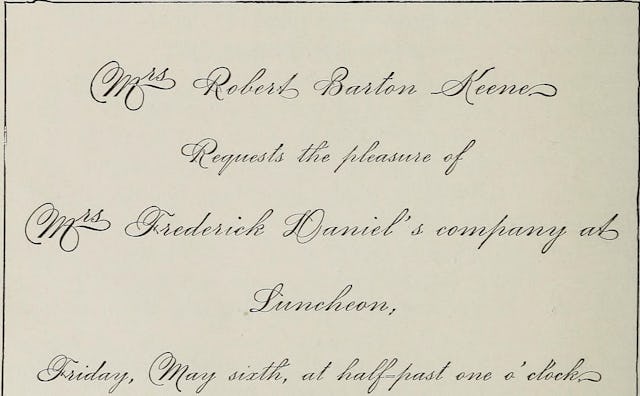 Mrs Robert Barton Keene
Requests the pleasure of
Mrs Frederick Daniel's company at
Luncheon,
Friday, May sixth, at half-past one o'clock.